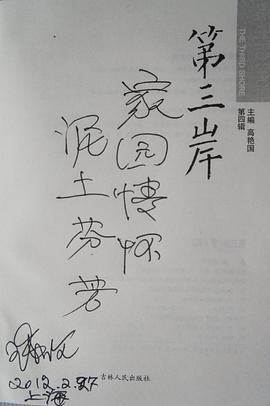 THE THIRD SHORE
第三岸
主编 高艳国
第四辑
家园情怀
泥土芬芳
2012.2.27
上海
吉林人民出版社